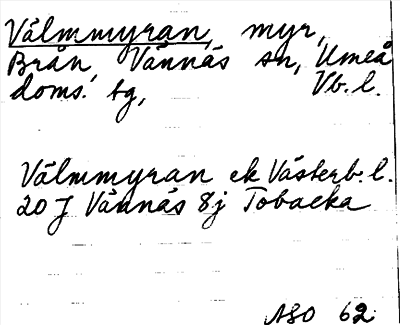 Välmmyran, myr,
Brån Vännäs sn, Umeå
doms. tg, Vb. l.
Välmmyran ek Västerb. l.
20 J Vännäs 8j Tobacka
ASO 62